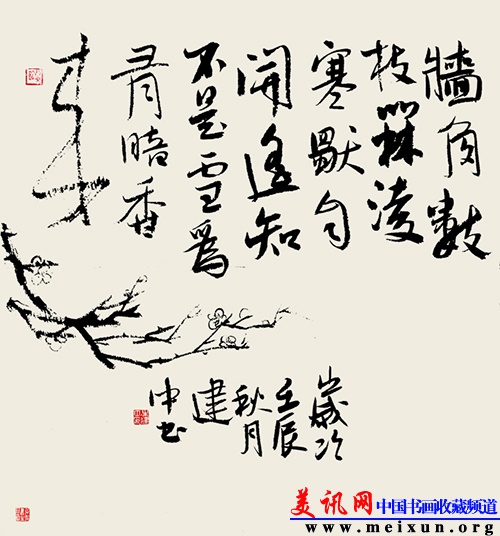 牆角數
枝槑凌
寒獨自
開遥知
不是雪爲
有暗香
来
歲次
壬辰
秋月
建
中书
美讯网 中国书画收藏频道
www.meixun.org